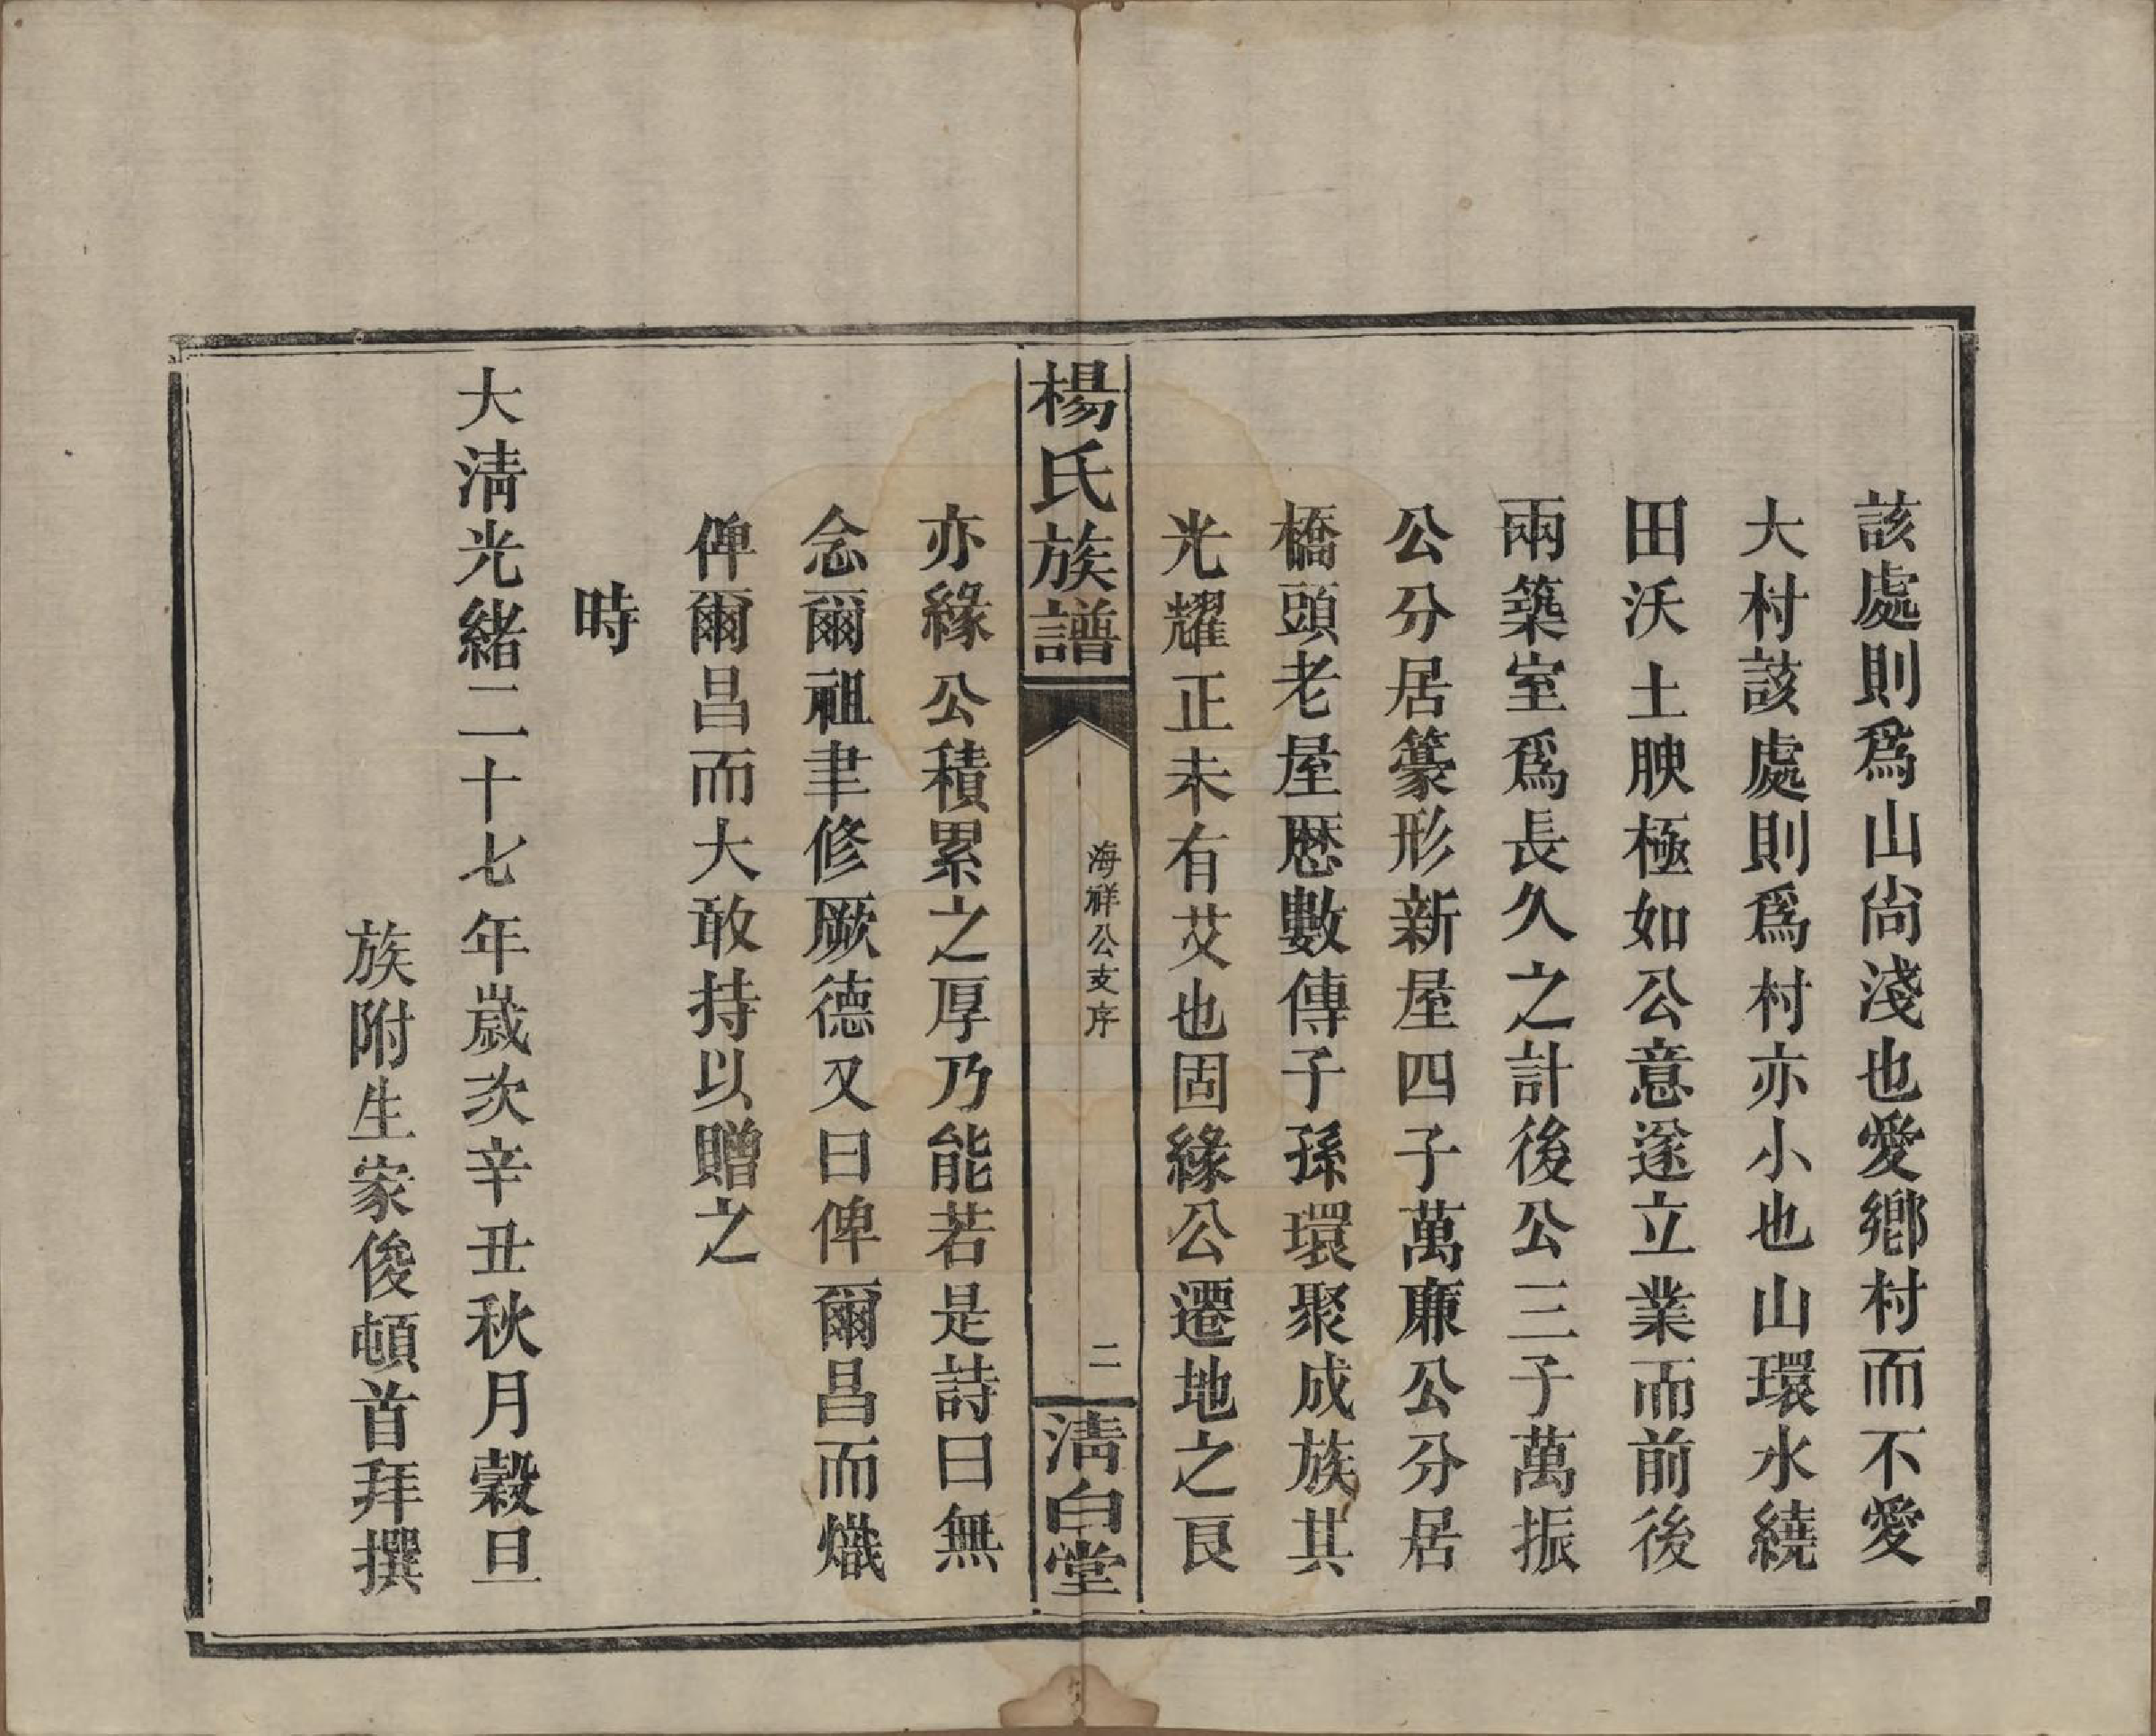 該處則爲山尙淺也愛鄕村而不愛
大村該處則爲村亦小也山環水繞
田沃土腴極如公意遂立業而前後
兩築室爲長久之計後公三子萬振
公分居篆形新屋四子萬亷公分居
橋頭老屋歷數傳子孫環聚成族其
光耀正未有艾也固緣公遷地之良
楊氏族譜
海祥公支序
二
淸白堂
亦緣公積累之厚乃能若是詩曰無
念爾祖聿修厥德又曰俾爾昌而熾
俾爾昌而大敢持以贈之
時
大淸光緒二十七年歲次辛丑秋月穀旦
族附生家俊頓首拜撰